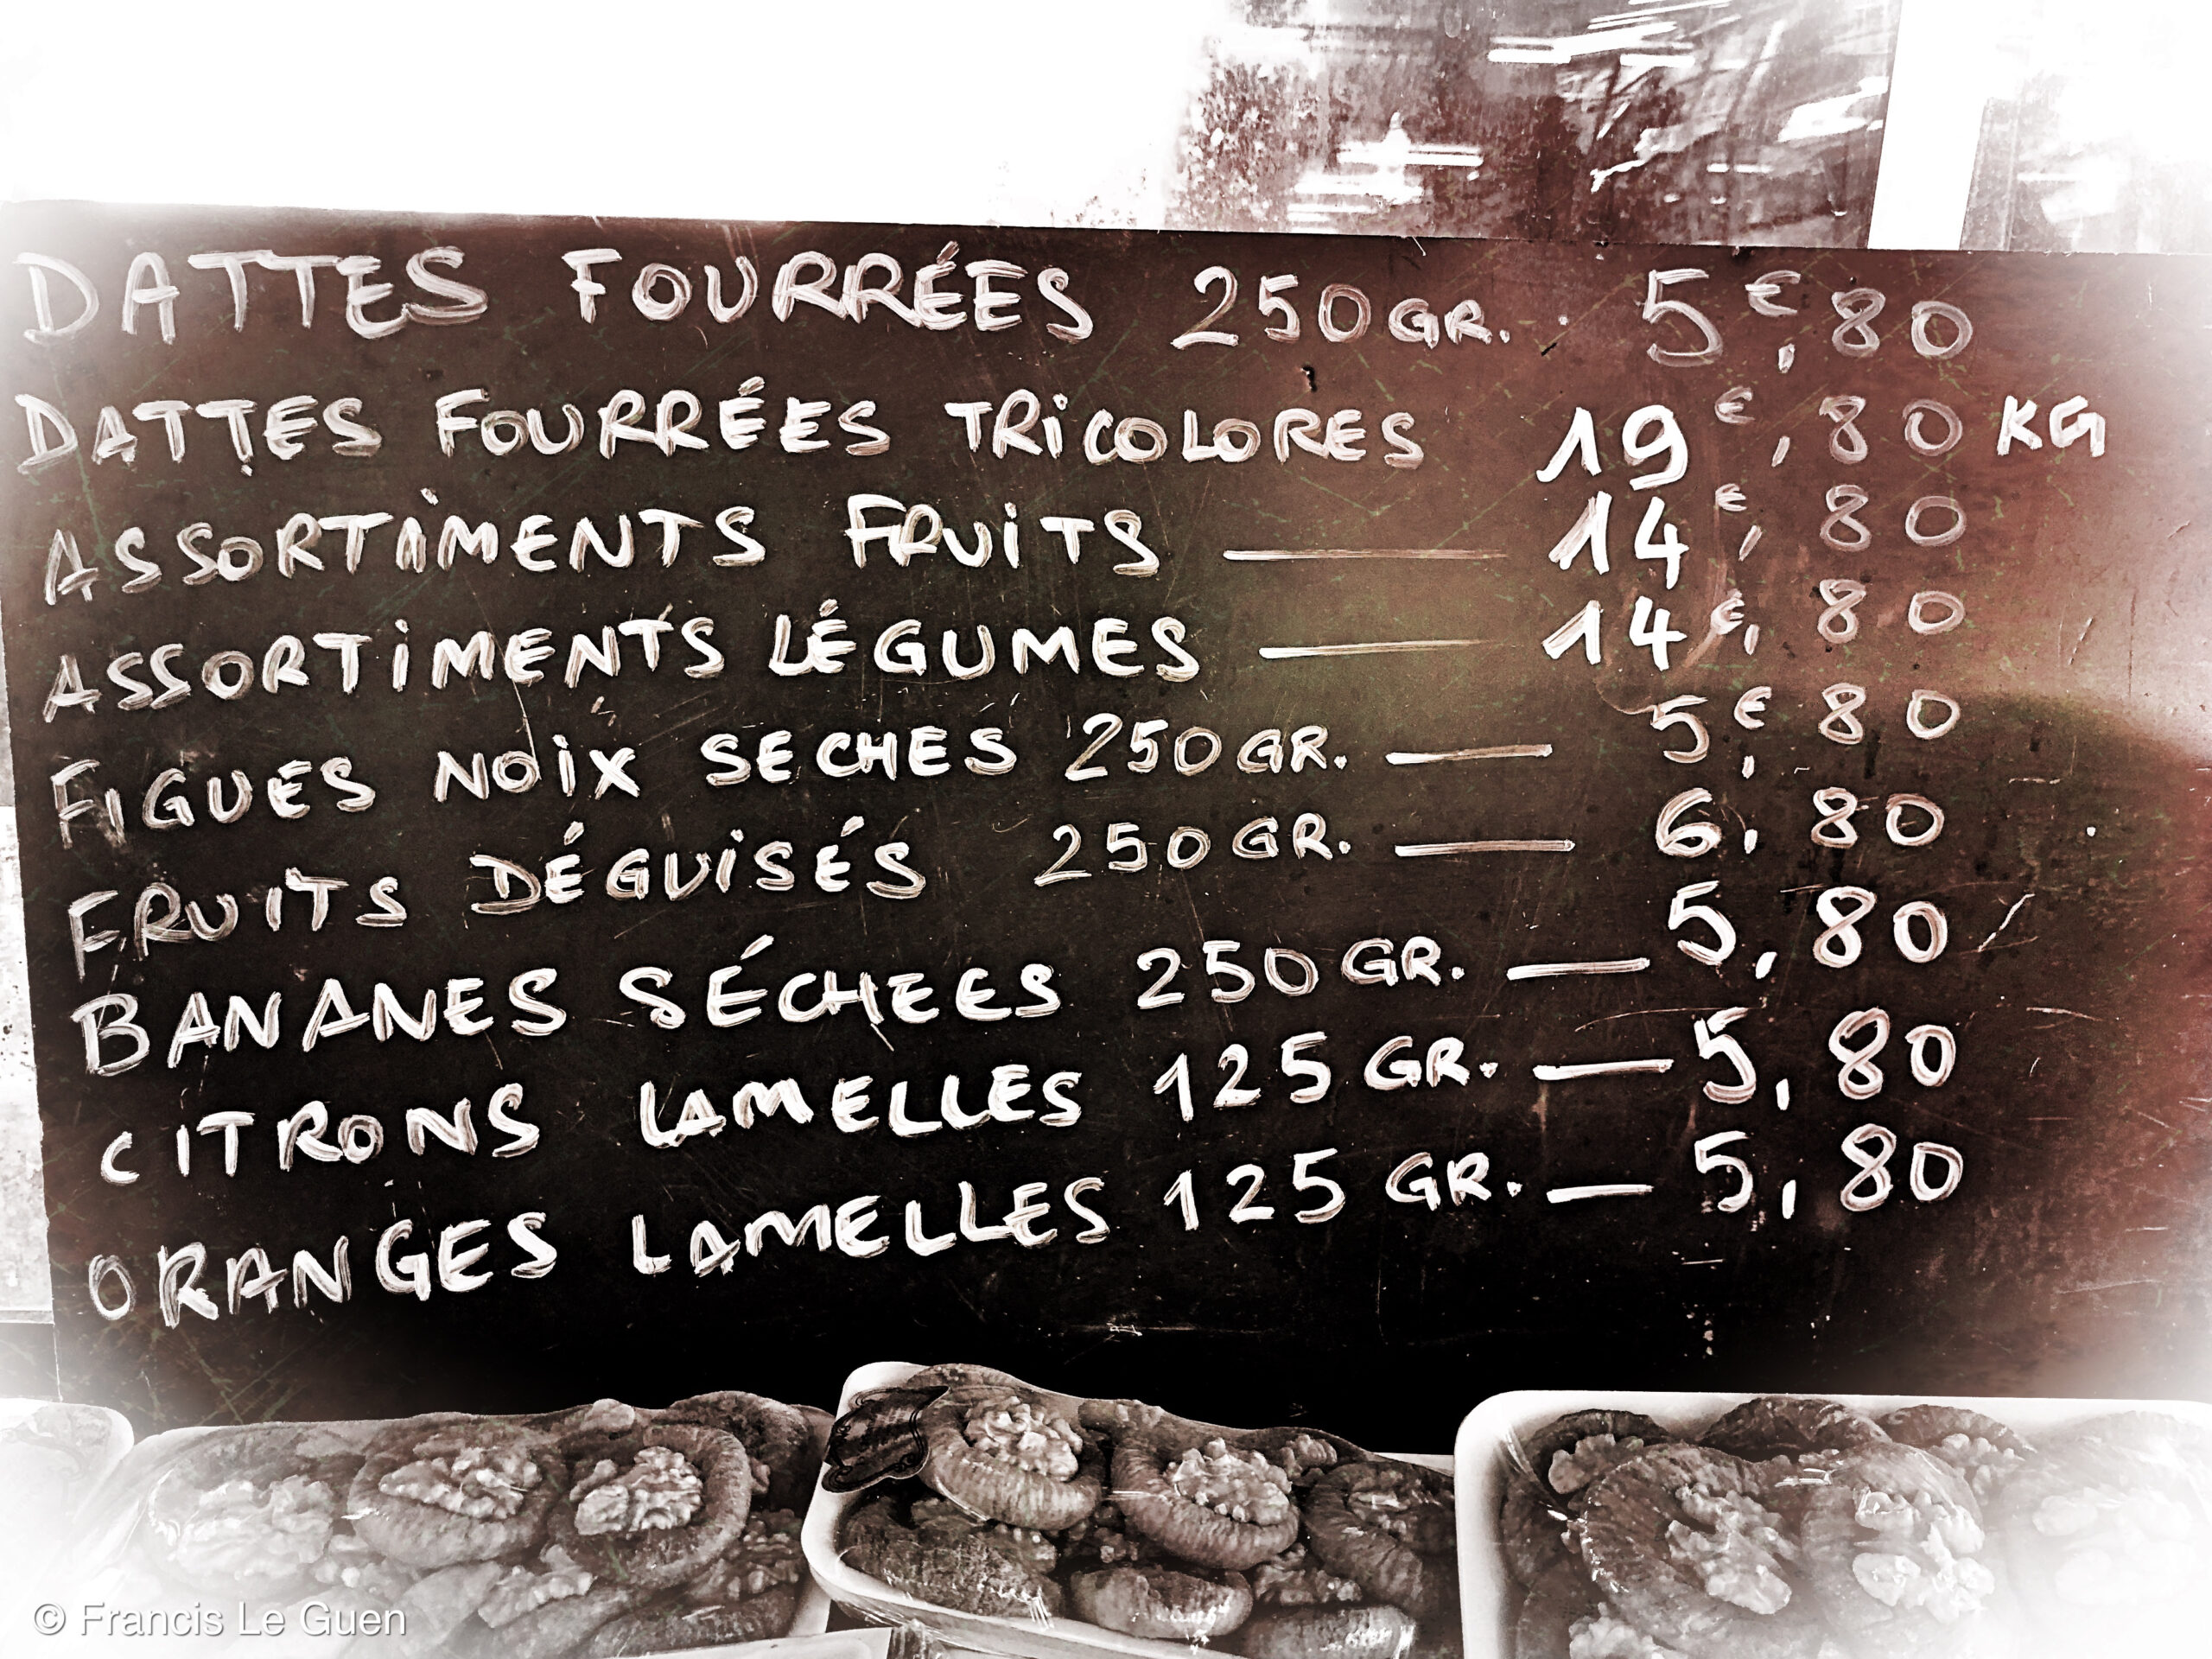 DATTES FOURRÉES 250GR. 5€,80
DATTES FOURRÉES TRICOLORES 19€,80 KG
ASSORTIMENTS FRUITS — 14€,80
ASSORTIMENTS LÉGUMES — 14€,80
FIGUES NOIX SECHES 250GR. — 5€,80
FRUITS DÉGUISÉS 250GR. — 6,80
BANANES SÉCHEES 250GR. — 5,80
CITRONS LAMELLES 125GR. — 5,80
ORANGES LAMELLES 125GR. — 5,80
© Francis Le Guen